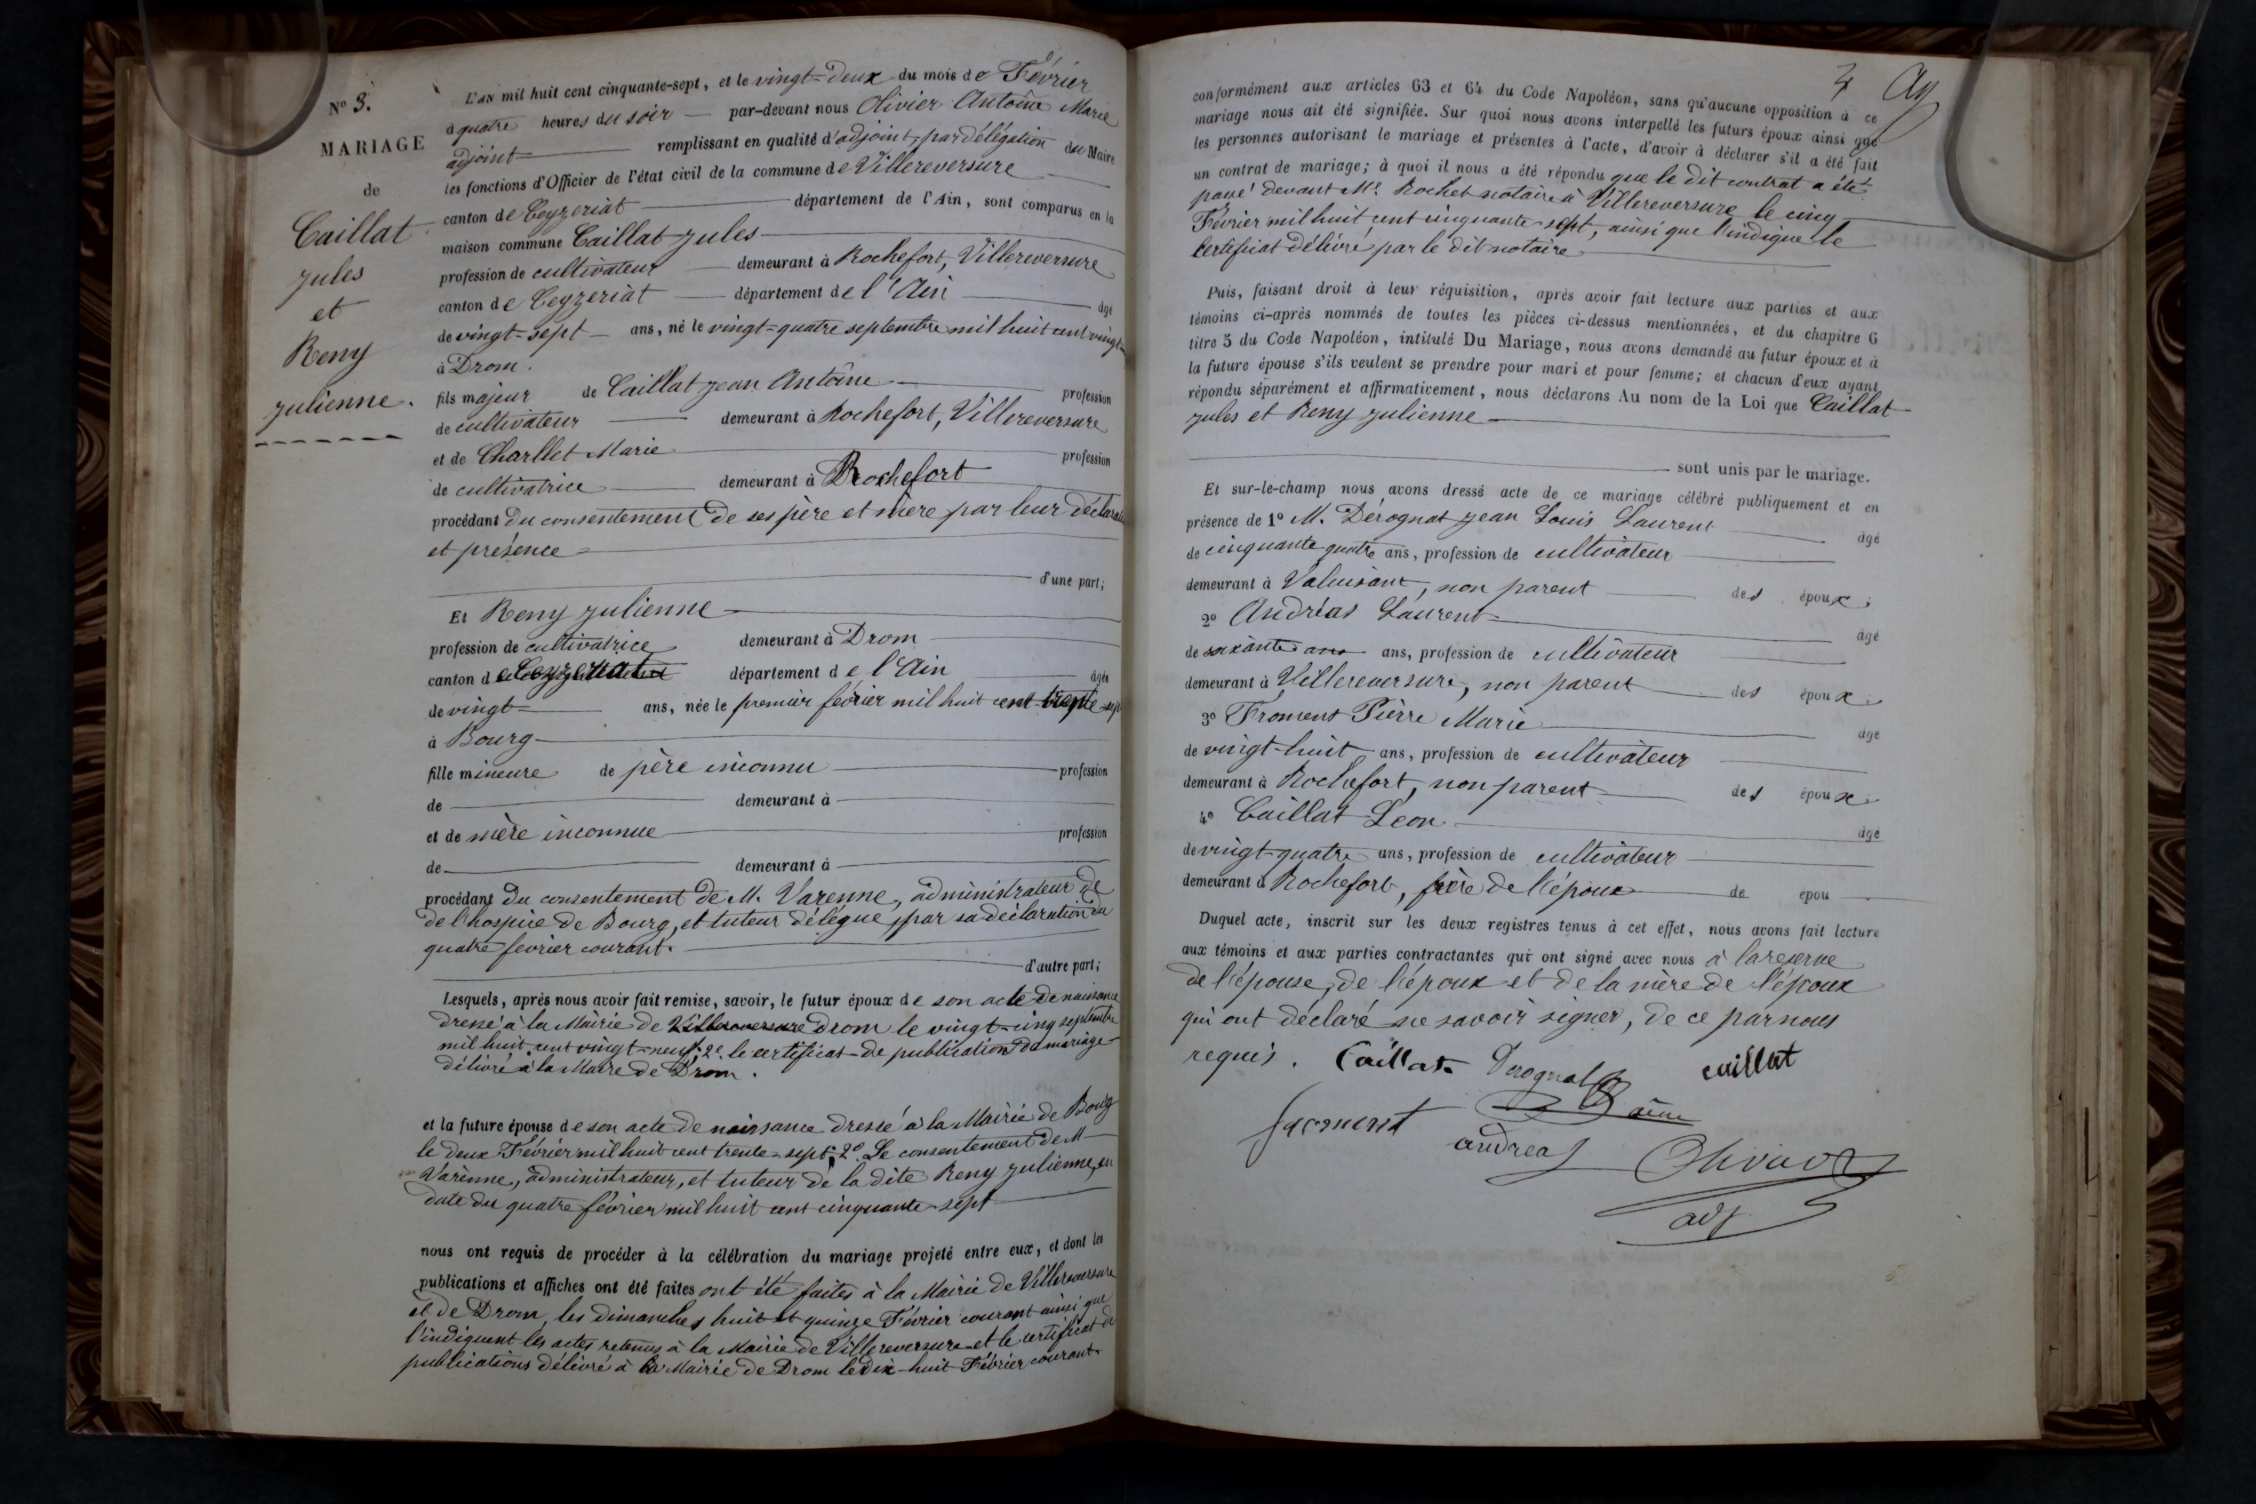 N° 3.
MARIAGE
de
Caillat
jules
et
Reny
julienne.
L'AN mil huit cent cinquante-sept, et le vingt-deux du mois de Février
à quatre heures du soir par-devant nous Olivier Antoine Marie
adjoint remplissant en qualité d'adjoint, par délégation du Maire
les fonctions d'Officier de l'état civil de la commune de Villereversure
canton de Ceyzeriat département de l'Ain, sont comparus en la
maison commune Caillat jules
profession de cultivateur demeurant à Rochefort, Villereversure
canton de Ceyzeriat département de l'Ain âgé
de vingt-sept ans, né le vingt-quatre septembre mil huit cent vingt-
à Drom.
fils majeur de Caillat jean Antoine profession
de cultivateur demeurant à Rochefort, Villereversure
et de Charllet Marie profession
de cultivatrice demeurant à Rochefort
procédant du consentement de ses père et mère par leur déclaration
et présence
d'une part;
Et Reny julienne
profession de cultivatrice demeurant à Drom
canton de Ceyzeriat département de l'Ain âgée
de vingt ans, née le premier février mil huit cent trente sept
à Bourg
fille mineure de père inconnu profession
de demeurant à
et de mère inconnue profession
de demeurant à
procédant du consentement de M. Varenne, administrateur de
de l'hospice de Bourg, et tuteur délégué, par sa déclaration du
quatre fevrier courant.
d'autre part;
Lesquels, après nous avoir fait remise, savoir, le futur époux de son acte de naissance
dressé à la Mairie de Villereversure Drom le vingt-cinq septembre
mil huit cent vingt-neuf; 2° le certificat de publication du mariage
délivré à la Maire de Drom.
et la future épouse de son acte de naissance dressé à la Mairie de Bourg
le deux Février mil huit cent trente-sept; 2° Le consentement de M
Varenne, administrateur, et tuteur de la dite Reny julienne, en
date du quatre février mil huit cent cinquante-sept
nous ont requis de procéder à la célébration du mariage projeté entre eux, et dont les
publications et affiches ont été faites ont été faites à la Mairie de Villereversure
et de Drom, les dimanches huit et quinze Février courant ainsi que
l'indiquent les actes retenus à la Mairie de Villereversure et le certificat de
publications délivré à la Mairie de Drom le dix-huit Février courant.
conformément aux articles 63 et 64 du Code Napoléon, sans qu'aucune opposition à ce
mariage nous ait été signifiée. Sur quoi nous avons interpellé les futurs époux ainsi que
les personnes autorisant le mariage et présentes à l'acte, d'avoir à déclarer s'il a été fait
un contrat de mariage; à quoi il nous a été répondu que le dit contrat a été
passé devant Me Rochet notaire à Villereversure le cinq
Février mil huit cent cinquante-sept, ainsi que l'indique le
Certificat délivré par le dit notaire
Puis, faisant droit à leur réquisition, après avoir fait lecture aux parties et aux
témoins ci-après nommés de toutes les pièces ci-dessus mentionnées, et du chapitre 6
titre 5 du Code Napoléon, intitulé Du Mariage, nous avons demandé au futur époux et à
la future épouse s'ils veulent se prendre pour mari et pour femme; et chacun d'eux ayant
répondu séparément et affirmativement, nous déclarons Au nom de la Loi que Caillat
jules et Reny julienne
sont unis par le mariage.
Et sur-le-champ nous avons dressé acte de ce mariage célébré publiquement et en
présence de 1° M. Dérognat jean Louis Laurent âgé
de cinquante quatre ans, profession de cultivateur
demeurant à Valuisant, non parent des époux;
2° Andréas Laurent âgé
de soixante ans ans, profession de cultivateur
demeurant à Villereversure, non parent des époux;
3° Froment Pierre Marie âgé
de vingt-huit ans, profession de cultivateur
demeurant à Rochefort, non parent des époux;
4° Caillat Léon âgé
de vingt-quatre ans, profession de cultivateur
demeurant à Rochefort, frère de l'époux de epou
Duquel acte, inscrit sur les deux registres tenus à cet effet, nous avons fait lecture
aux témoins et aux parties contractantes qui ont signé avec nous à la réserve
de l'épouse, de l'époux et de la mère de l'époux
qui ont déclaré ne savoir signer, de ce par nous
requis. Caillat Derognat caillat
ainé
froment andreas Olivier
adj